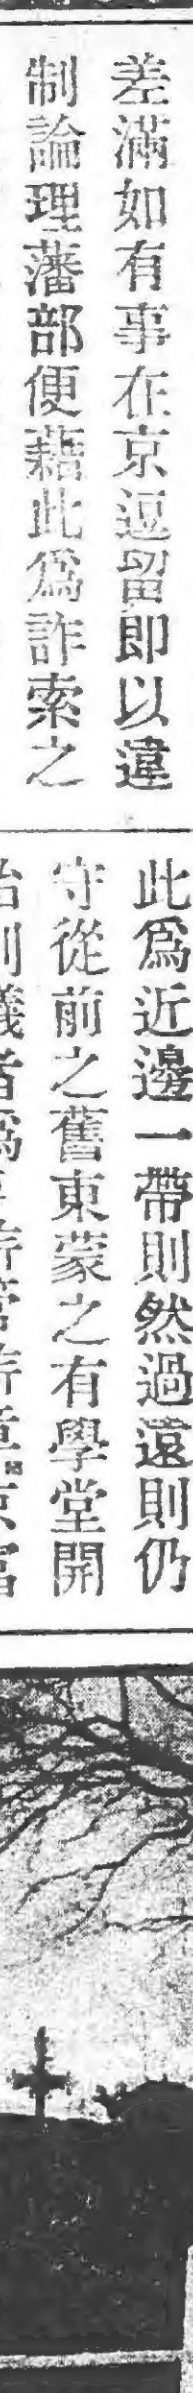 差滿如有事在京逗留即以違
制論理藩部便藉此爲詐索之
此爲近邊一帶則然過遠則仍
守從前之舊東蒙之有學堂開